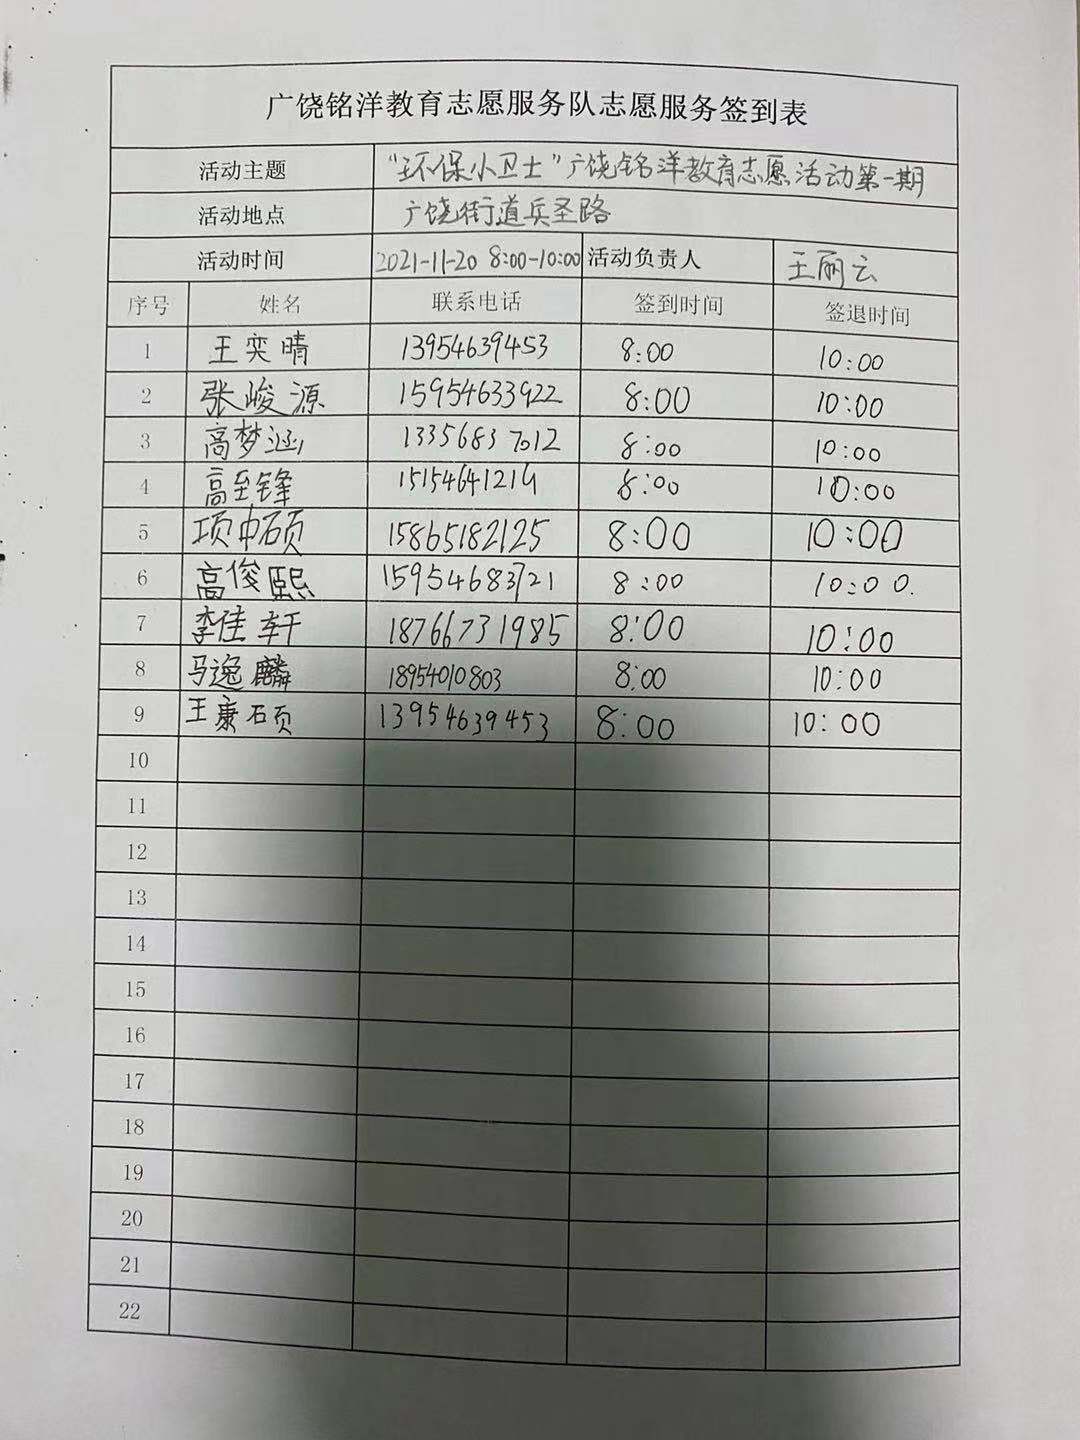 广饶铭洋教育志愿服务队志愿服务签到表
活动主题 “环保小卫士”广饶铭洋教育志愿活动第一期
活动地点 广饶街道兵圣路
活动时间 2021-11-20 8:00-10:00 活动负责人 王丽云
序号 姓名 联系电话 签到时间 签退时间
1 王奕晴 13954639453 8:00 10:00
2 张峻源 15954633922 8:00 10:00
3 高梦涵 13356837012 8:00 10:00
4 高至锋 15154641214 8:00 10:00
5 项中硕 15865182125 8:00 10:00
6 高俊熙 15954683721 8:00 10:00.
7 李佳轩 18766731985 8:00 10:00
8 马逸麟 18954010803 8:00 10:00
9 王康硕 13954639453 8:00 10:00
10
11
12
13
14
15
16
17
18
19
20
21
22